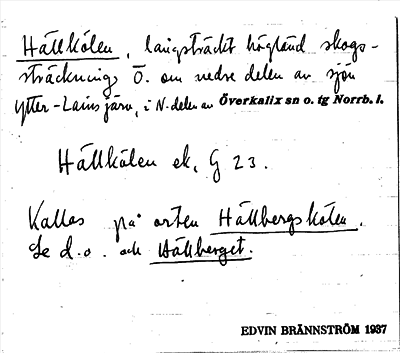 Hällkölen, långsträckt högländ skogs-
sträckning, Ö. om nedre delen av sjön
Ytter-Lainsjärv, i N-delen av Överkalix sn o. tg Norrb. l.
Hällkölen ek. G 23.
Kallas på orten Hällbergskölen.
Se d.o. och Hällberget.
EDVIN BRÄNNSTRÖM 1937